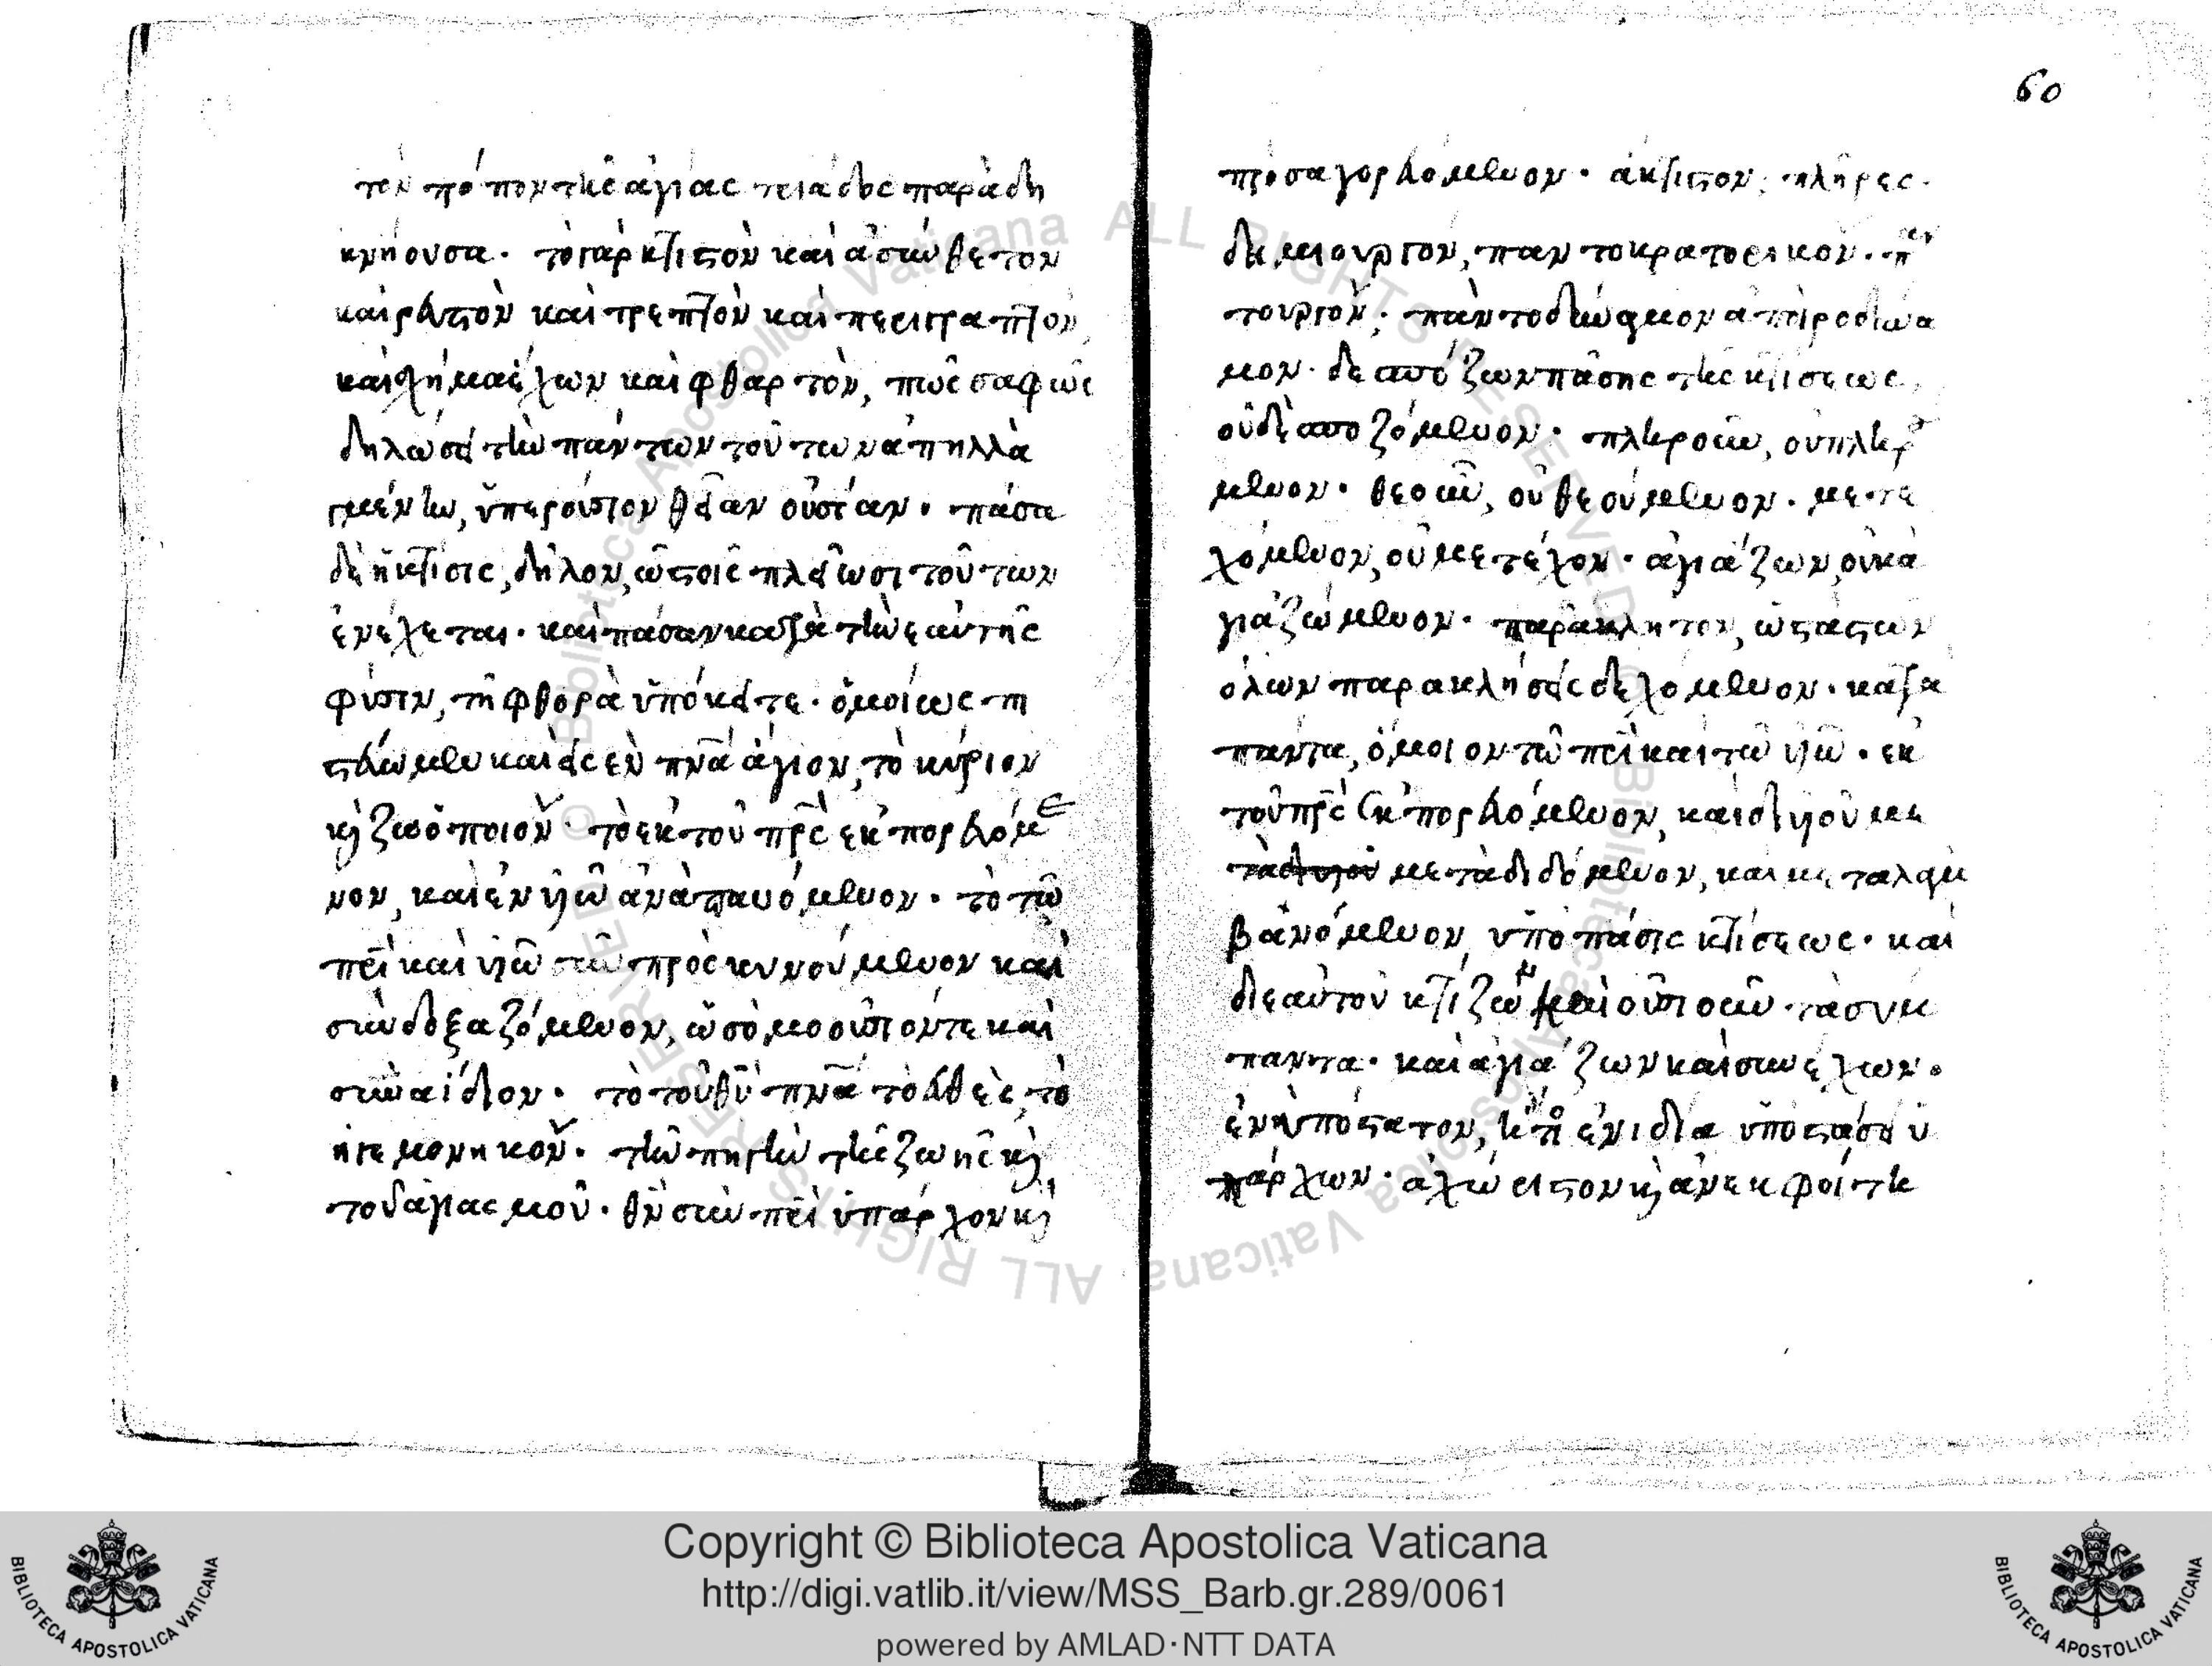 τὸν τρόπον τῆς ἁγίας τριάδος παραδη
κνήουσα. τὸ γὰρ κτιστὸν καὶ ἀσύνθετον
καὶ ρευστὸν καὶ τρεπτὸν καὶ περιγραπτὸν,
καὶ σχήμα ἔχων καὶ φθαρτὸν, πῶς σαφῶς
δηλώσει τὴν πάντων τούτων ἀπηλλα
γμένην, ὑπερούσιον θείαν οὐσίαν. πάσα
δὲ ἡ κτίσις, δήλον, ὡς τοῖς πλείωσι τούτων
ἐνέχεται. καὶ πάσαν κατὰ τὴν ἑαυτῆς
φύσιν, τῇ φθορᾶ ὑπόκειτε. ὁμοίως πι
στεύωμεν καὶ εἰς ἓν πνα ἅγιον, τὸ κύριον
κ ζωὀποιὸν. τὸ ἐκ τοῦ πρς ἐκπορευόμε
νον, καὶ ἐν υἱῶ ἀναπαυόμενον. τὸ τῶ
πρι καὶ υἱῶ συν προσκυνούμενον καὶ
συνδοξαζόμενον, ὡς ὁμοούσιόντε καὶ
συναίδιον. τὸ τοῦ θυ πνα τὸ εὐθὲς, τὸ
ἡγεμονηκὸν. τὴν πηγὴν τῆς ζωῆς κ
τοῦ ἁγιασμοῦ. θν σὺν πρι ὑπάρχον κ
60
προσαγορευόμενον. ἄκτιστον, πλήρες.
δημιουργὸν, παντοκρατορικὸν. παν
τουργὸν, παντοδύναμον ἀπειροδύνα
μον. δεσπόζων πάσης τῆς κτίσεως,
οὐ δεσποζόμενον. πληροῦν, οὐ πληρού
μενον. θεοῦν, οὐ θεούμενον. μετε
χόμενον, οὐ μετέχον. ἁγιάζων, οὐχ ἁ
γιαζώμενον. παράκλητον, ὡς τὰς τῶν
ὅλων παρακλήσεις δεχόμενον. κατα
πάντα, ὅμοιον τῶ πρι καὶ τῶ υἱῶ. ἐκ
τοῦ πρς ἐκπορευόμενον, καὶ δι υἱοῦ με
τὰ δι υἱοῦ μεταδιδόμενον, καὶ μεταλαμ
βανόμενον, ὑπὸ πάσις κτίσεως. καὶ
δι ἑαυτοῦ κτίζων καὶ οὐσιοῦν τὰ σύμ
παντα. καὶ ἁγιάζων καὶ συνέχων.
ἐνηπόστατον, ἤτοι ἐν ἰδία ὑποστάσει ὑ
πάρχων. ἀχώριστον κ ἀνεκφοίτη